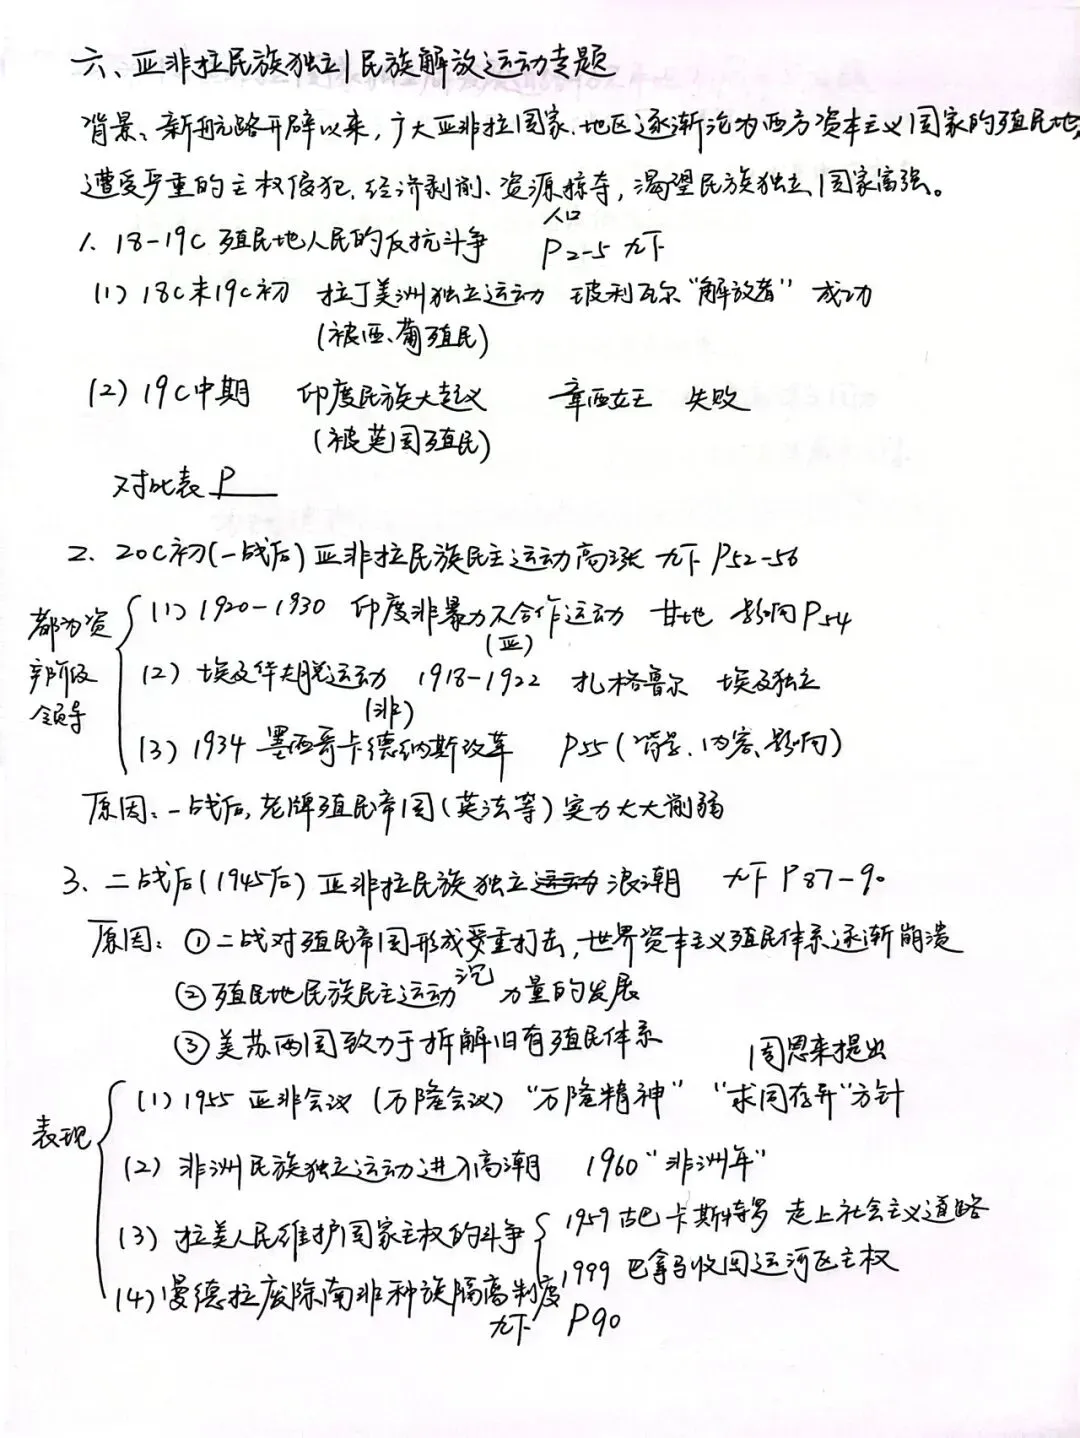 六、亚非拉民族独立民族解放运动专题
背景、新航路开辟以来，广大亚非拉国家、地区逐渐沦为西方资本主义国家的殖民地，
遭受严重的主权侵犯、经济剥削、资源掠夺，渴望民族独立、国家富强。
人口
1. 18-19C 殖民地人民的反抗斗争 P2-5 九下
(1) 18C末19C初 拉丁美洲独立运动 玻利瓦尔"解放者" 成功
(被西、葡殖民)
(2) 19C中期 印度民族大起义 章西女王 失败
(被英国殖民)
对比表 P
2. 20C初(一战后) 亚非拉民族民主运动高涨 九下 P52-56
都为资产阶级领导
(1) 1920-1930 印度非暴力不合作运动 甘地 影响P54
(亚)
(2) 埃及华夫脱运动 1918-1922 扎格鲁尔 埃及独立
(非)
(3) 1934 墨西哥卡德纳斯改革 P55(背景、内容、影响)
原因：一战后，老牌殖民帝国(英法等)实力大大削弱
3. 二战后(1945后) 亚非拉民族独立运动浪潮 九下 P87-90
原因：①二战对殖民帝国形成严重打击，世界资本主义殖民体系逐渐崩溃
②殖民地民族民主运动 力量的发展
③美苏两国致力于拆解旧有殖民体系
周恩来提出
表现
(1) 1955 亚非会议 (万隆会议) "万隆精神" "求同存异"方针
(2) 非洲民族独立运动进入高潮 1960"非洲年"
(3) 拉美人民维护国家主权的斗争 1959 古巴 卡斯特罗 走上社会主义道路
1999 巴拿马收回运河区主权
(4) 曼德拉废除南非种族隔离制度
九下 P90